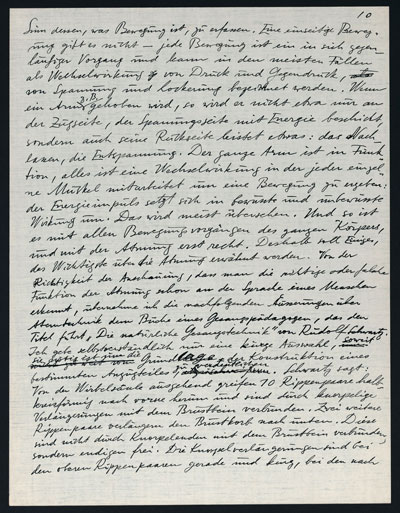 10
Sinn dessen, was Bewegung ist, zu erfassen. Eine einseitige Bewe-
gung gibt es nicht — jede Bewegung ist ein in sich gegen-
läufiger Vorgang und kann in den meisten Fällen
als Wechselwirkung von Druck und Gegendruck,
von Spannung und Lockerung bezeichnet werden. Wenn
ein Arm z.B. gehoben wird, so wird er nicht etwa nur an
der Zugseite, der Spannungsseite mit Energie beschickt
sondern auch seine Rückseite leistet etwas: das Nach-
lassen, die Entspannung. Der ganze Arm ist in Funk-
tion, alles ist eine Wechselwirkung in der jeder einzel-
ne Muskel mitarbeitet um eine Bewegung zu ergeben:
der Energieimpuls setzt sich in bewusste und unbewusste
Wirkung um. Das wird meist übersehen. Und so ist
es mit allen Bewegungsvorgängen des ganzen Körpers,
und mit der Atmung erst recht. Deshalb soll Einiges,
das Wichtigste über die Atmung erwähnt werden. Von der
Richtigkeit der Anschauung, dass man die richtige oder falsche
Funktion der Atmung schon an der Sprache eines Menschen
erkennt, übernehme ich die nachfolgenden Äusserungen über
Atemtechnik dem Buche eines Gesangspädagogen, das den
Titel führt, „Die natürliche Gesangstechnik" von Rudolf Schwartz.
Ich gebe selbstverständlich nur eine kurze Auswahl, soweit
sie nötig ist um die
Grundlage der Konstruktion eines
bestimmten Angstgefühles zu
Schwartz sagt:
Von der Wirbelsäule ausgehend greifen 10 Rippenpaare halb-
kreisförmig nach vorne herum und sind durch knorpelige
Verlängerungen mit dem Brustbein verbunden. Zwei weitere
Rippenpaare verlängern den Brustkorb nach unten. Diese
sind nicht durch Knorpelenden mit dem Brustbein verbunden,
sondern endigen frei. Die Knorpelverlängerungen sind bei
den oberen Rippenpaaren gerade und kurz, bei den nach